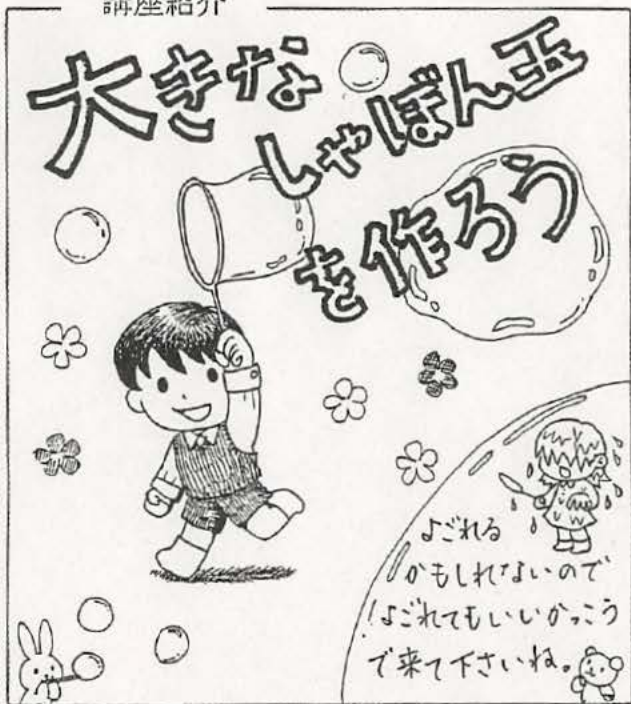 講座紹介
大きな
しゃぼん玉
を作ろう
よごれる
かもしれないので
よごれてもいいかっこう
で来て下さいね。